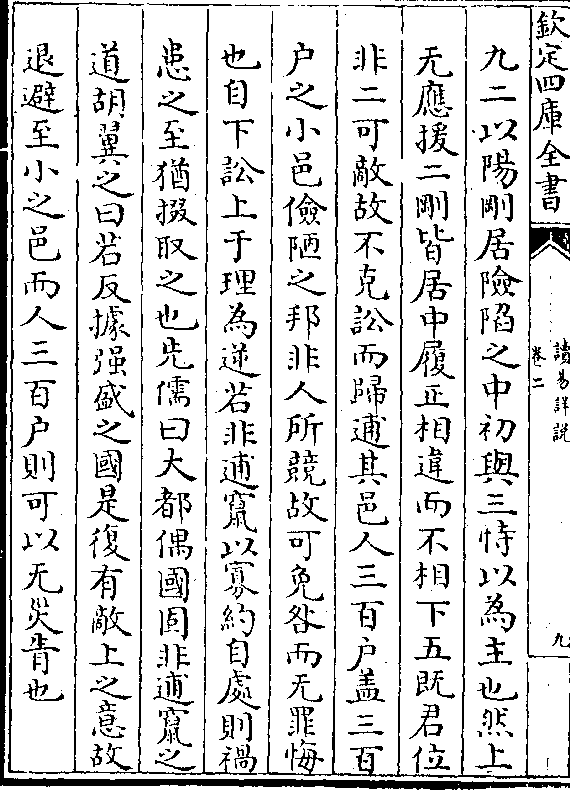 欽定四庫全書
讀易詳說
卷二
九
九二以陽剛居險陷之中初與三恃以為主也然上
无應援二剛皆居中履正相違而不相下五既君位
非二可敵故不克訟而歸逋其邑人三百户盖三百
户之小邑儉陋之邦非人所競故可免咎而无罪悔
也自下訟上于理為逆若非逋竄以寡約自處則禍
患之至猶掇取之也先儒曰大都偶國固非逋竄之
道胡翼之曰若反據强盛之國是復有敵上之意故
退避至小之邑而人三百户則可以无災眚也